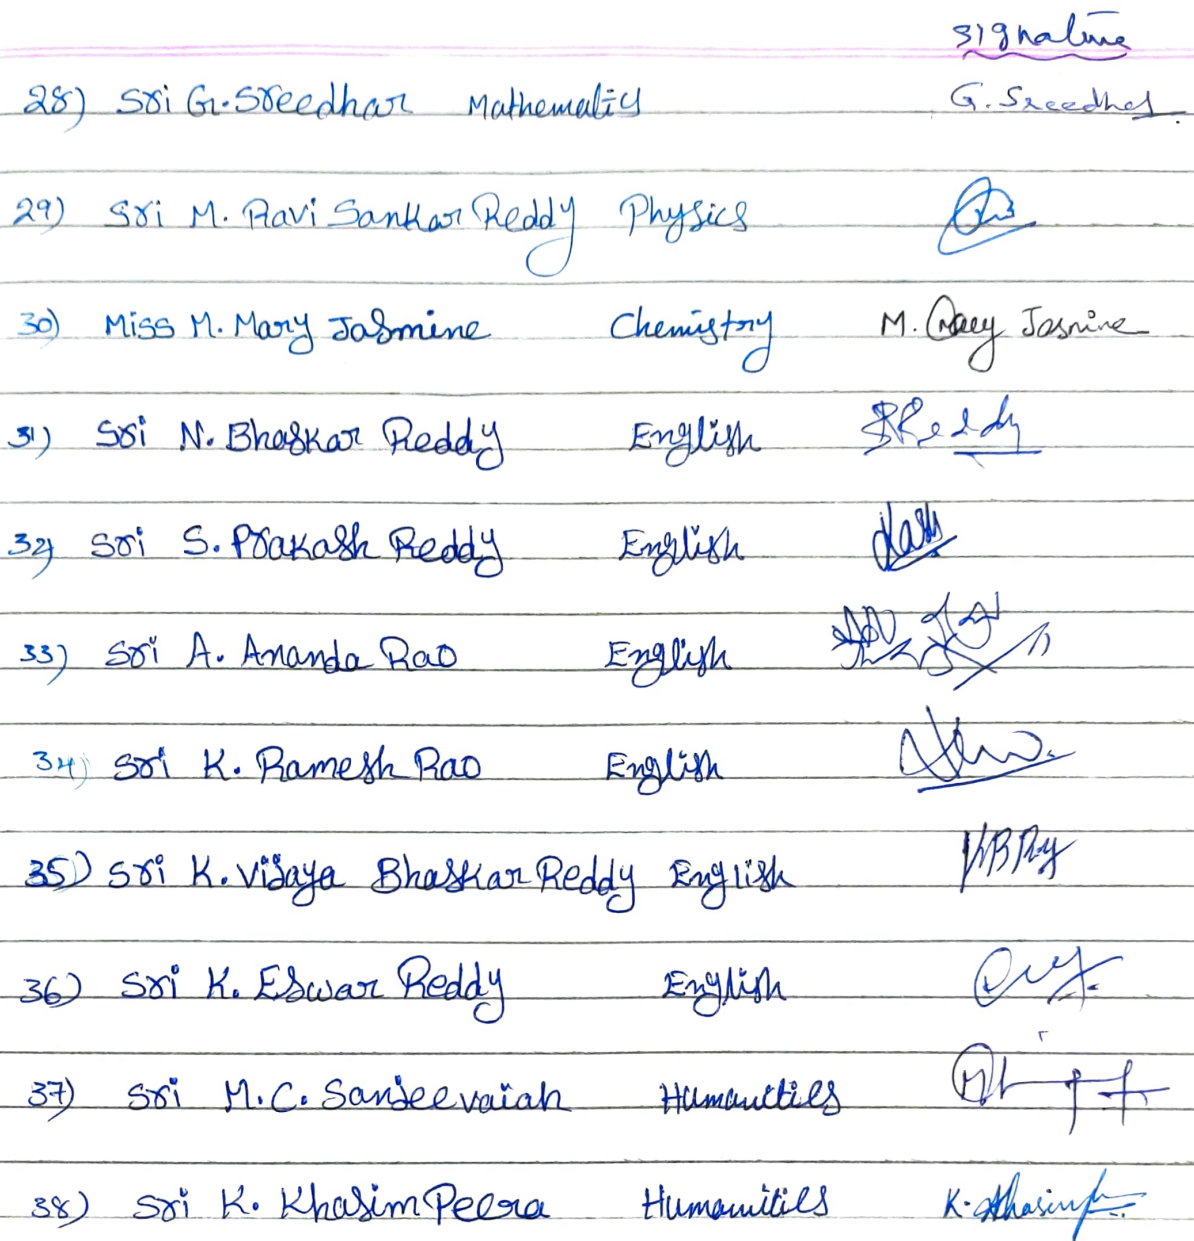 Signature
28) Sri G. Sreedhar Mathematics G. Sreedhar
29) Sri M. Ravi Sankar Reddy Physics
30) Miss M. Mary Jasmine Chemistry M. Mary Jasmine
31) Sri N. Bhaskar Reddy English
32) Sri S. Prakash Reddy English
33) Sri A. Ananda Rao English
34) Sri K. Ramesh Rao English
35) Sri K. Vijaya Bhaskar Reddy English
36) Sri K. Eswar Reddy English
37) Sri M.C. Sanjeevaiah Humanities
38) Sri K. Khasim Peera Humanities